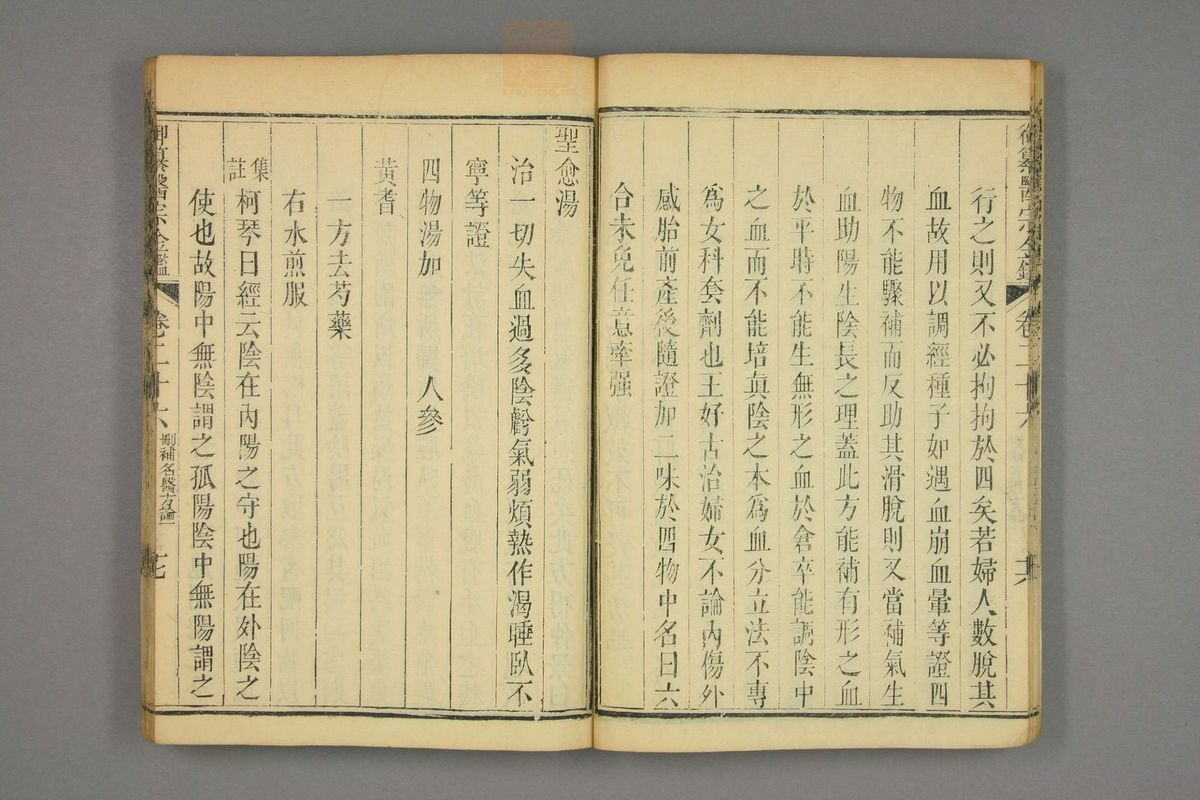 御纂醫宗金鑑 卷二十六
行之則又不必拘拘於四矣若婦人數脫其
血故用以調經種子如遇血崩血暈等證四
物不能驟補而反助其滑脫則又當補氣生
血助陽生陰長之理蓋此方能補有形之血
於平時不能生無形之血於倉卒能調陰中
之血而不能培眞陰之本爲血分立法不專
爲女科套劑也王好古治婦女不論內傷外
感胎前產後隨證加二味於四物中名曰六
合未免任意牽强
聖愈湯
治一切失血過多陰虧氣弱煩熱作渴睡臥不
寧等證
四物湯加 人參
黃耆
一方去芍藥
右水煎服
集註 柯琴曰經云陰在內陽之守也陽在外陰之
使也故陽中無陰謂之孤陽陰中無陽謂之
御纂醫宗金鑑 卷二十六 刪補名醫方論一